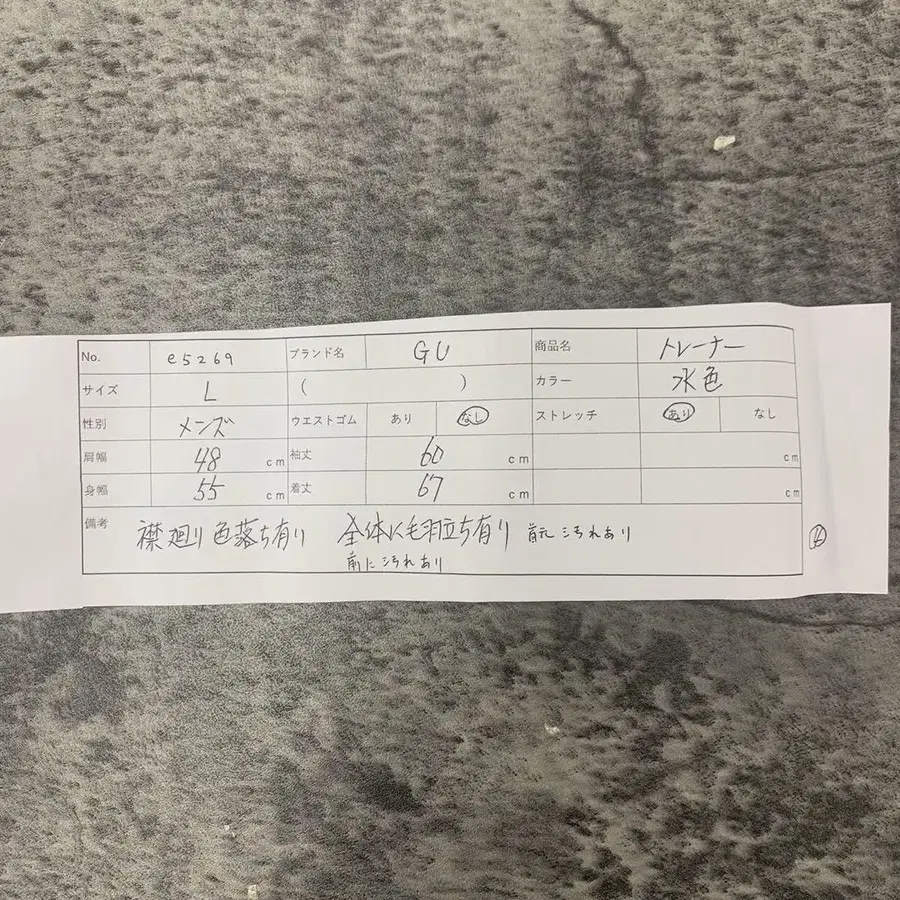 No. e5269 ブランド名 GU 商品名 トレーナー
サイズ L ( ) カラー 水色
性別 メンズ ウエストゴム あり なし ストレッチ あり なし
肩幅 48 cm 袖丈 60 cm cm
身幅 55 cm 着丈 67 cm cm
備考 襟廻り色落ち有り 全体に毛羽立ち有り 汚れあり
前に汚れあり